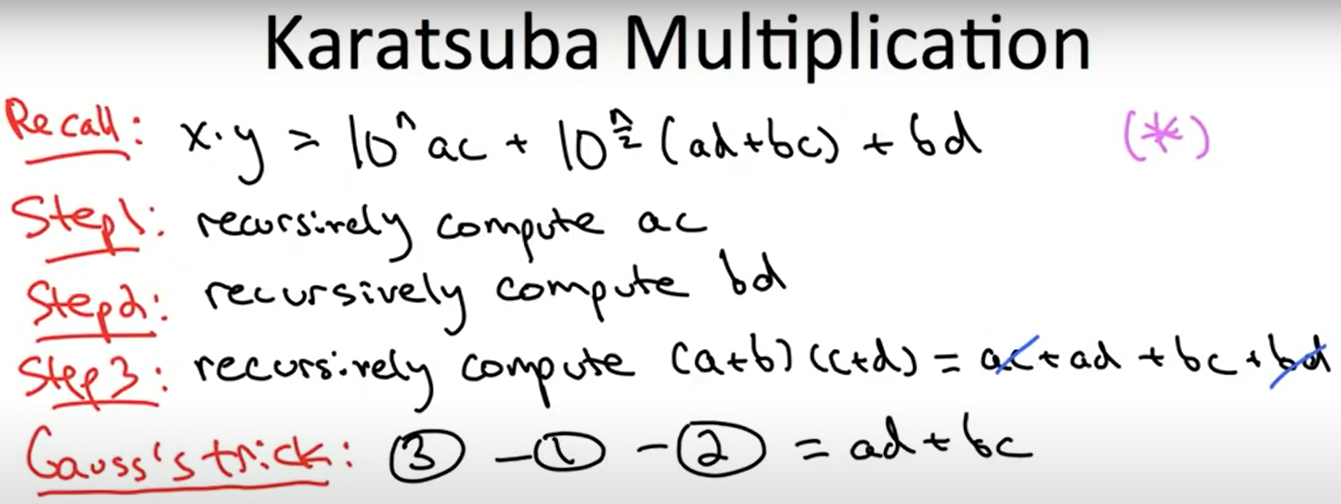 Karatsuba Multiplication
Recall: x·y = 10ⁿ ac + 10^(n/2) (ad+bc) + bd (*)
Step1: recursively compute ac
Step2: recursively compute bd
Step3: recursively compute (a+b)(c+d) = ac + ad + bc + bd
Gauss's trick: ③ - ① - ② = ad + bc